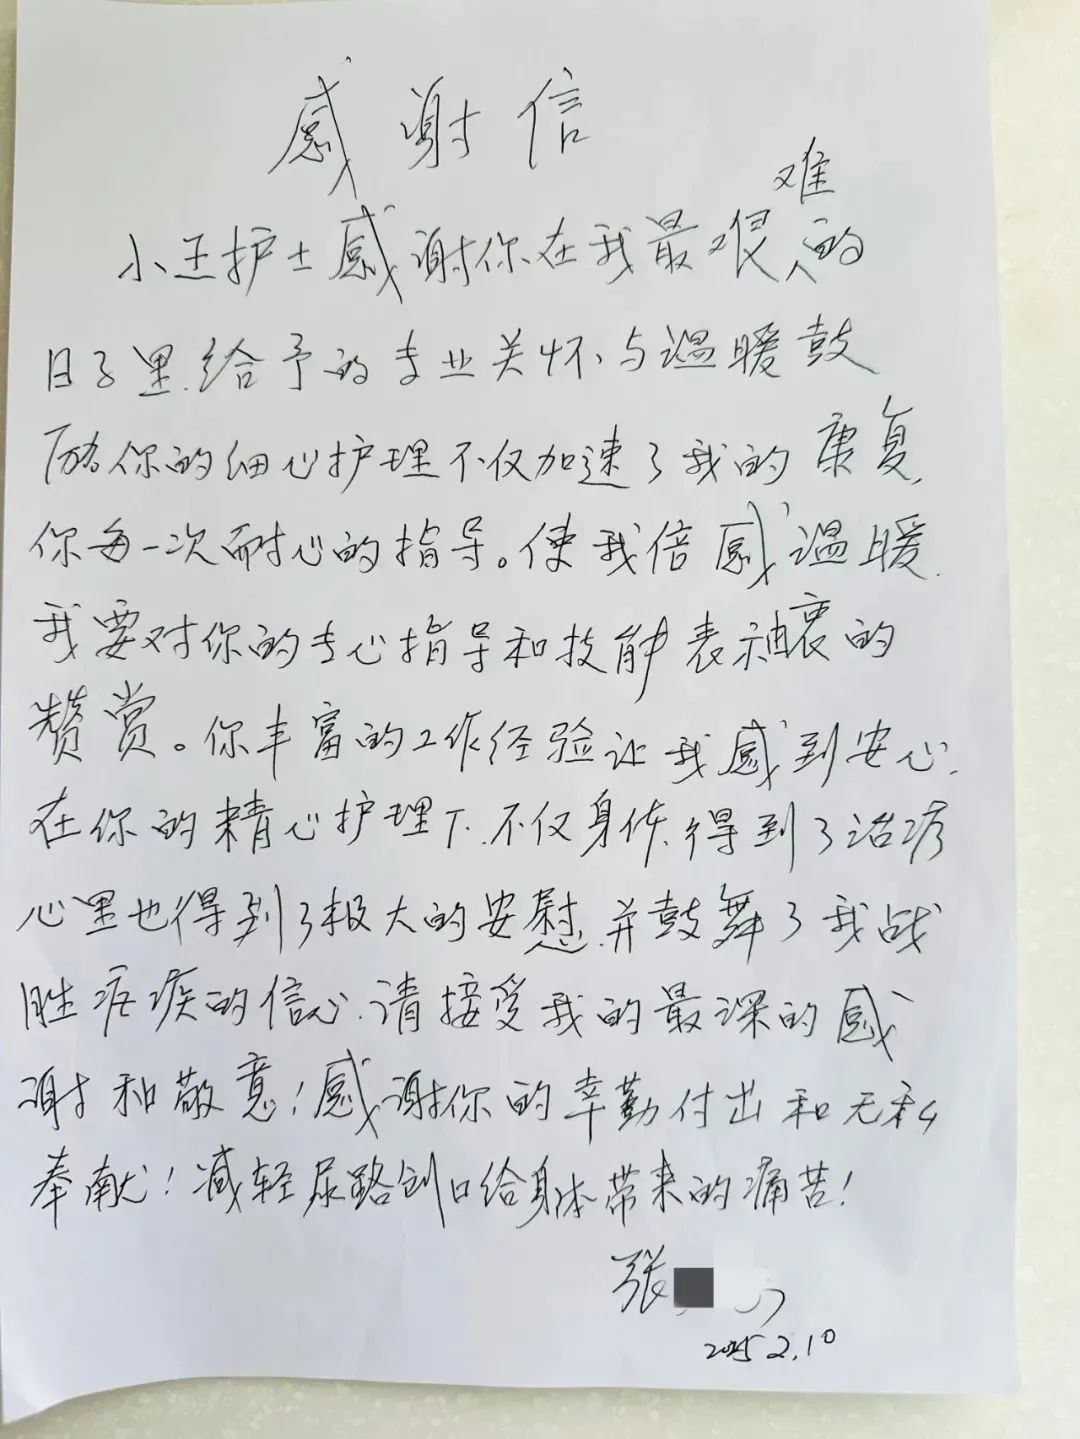 感谢信
小王护士感谢你在我最艰难的
日子里.给予的专业关怀、与温暖鼓
励你的细心护理不仅加速了我的康复,
你每一次耐心的指导。使我倍感温暖.
我要对你的专心指导和技能表示衷的
赞赏。你丰富的工作经验让我感到安心.
在你的精心护理下.不仅身体.得到了治疗
心里也得到了极大的安慰.并鼓舞了我战
胜疾病的信心.请接受我的最深的感
谢和敬意!感谢你的辛勤付出和无私
奉献!减轻尿路创口给身体带来的痛苦!
张
2025 2.10